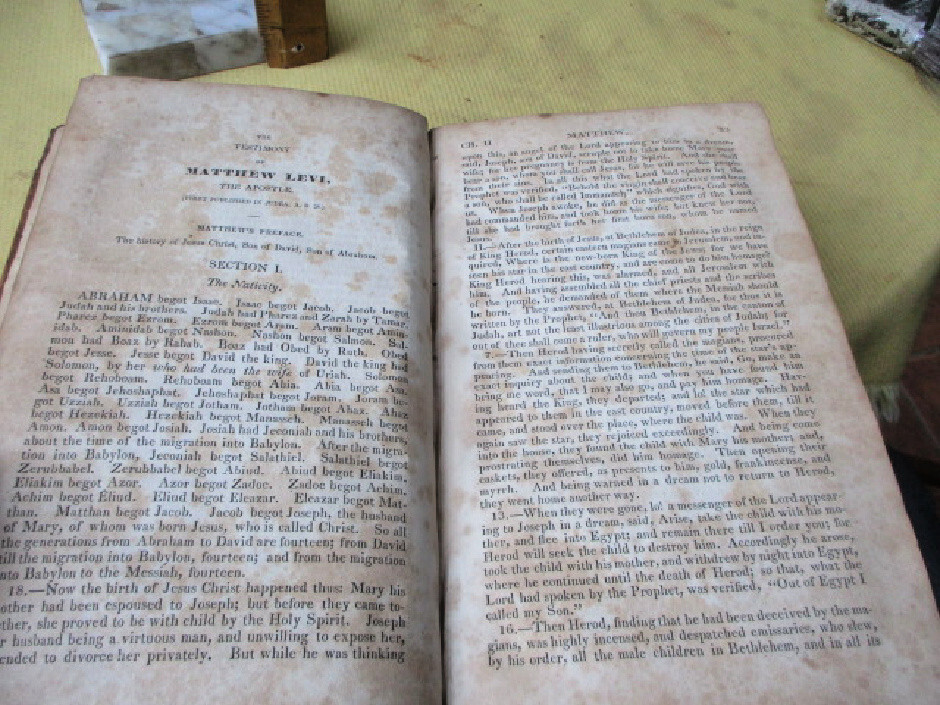 THE
TESTIMONY
OF
MATTHEW LEVI,
THE APOSTLE.
[FIRST PUBLISHED IN JUDEA, A. D.
MATTHEW'S PREFACE.
The history of Jesus Christ, Son of David, Son of Abraham.
SECTION I.
The Nativity.
ABRAHAM begot Isaac. Isaac begot Jacob. Jacob begot
Judah and his brothers. Judah had Pharez and Zarah by Tamar.
Pharez begot Ezrom. Ezrom begot Aram. Aram begot Amin-
idab. Aminidab begot Nashon. Nashon begot Salmon. Sal-
mon had Boaz by Rahab. Boaz had Obed by Ruth. Obed
begot Jesse. Jesse begot David the king. David the king had
Solomon, by her who had been the wife of Uriah. Solomon
begot Rehoboam. Rehoboam begot Abia. Abia begot Asa.
Asa begot Jehoshaphat. Jehoshaphat begot Joram. Joram be-
got Uzziah. Uzziah begot Jotham. Jotham begot Ahaz. Ahaz
begot Hezekiah. Hezekiah begot Manasseh. Manasseh begot
Amon. Amon begot Josiah. Josiah had Jeconiah and his brothers,
about the time of the migration into Babylon. After the migra-
tion into Babylon, Jeconiah begot Salathiel. Salathiel begot
Zerubbabel. Zerubbabel begot Abiud. Abiud begot Eliakim.
Eliakim begot Azor. Azor begot Zadoc. Zadoc begot Achim.
Achim begot Eliud. Eliud begot Eleazar. Eleazar begot Mat-
than. Matthan begot Jacob. Jacob begot Joseph, the husband
of Mary, of whom was born Jesus, who is called Christ. So all
the generations from Abraham to David are fourteen; from David
till the migration into Babylon, fourteen; and from the migration
into Babylon to the Messiah, fourteen.
18.—Now the birth of Jesus Christ happened thus: Mary his
other had been espoused to Joseph; but before they came to-
ther, she proved to be with child by the Holy Spirit. Joseph
r husband being a virtuous man, and unwilling to expose her,
ended to divorce her privately. But while he was thinking
CH. II MATTHEW.
upon this, an angel of the Lord appearing to him in a dream,
said, Joseph, son of David, scruple not to take home Mary your
wife; for her pregnancy is from the Holy Spirit. And she shall
bear a son, whom you shall call Jesus, for he will save his people
from their sins. In all this what the Lord had spoken by the
Prophet was verified, "Behold the virgin shall conceive and bear
a son, who shall be called Immanuel," which signifies, God with
us. When Joseph awoke, he did as the messenger of the Lord
had commanded him, and took home his wife; but knew her not,
till she had brought forth her first born son, whom he named
Jesus.
II.—After the birth of Jesus, at Bethlehem of Judea, in the reign
of King Herod, certain eastern magians came to Jerusalem, and in-
quired, Where is the new-born King of the Jews; for we have
seen his star in the east country, and are come to do him homage?
King Herod hearing this, was alarmed, and all Jerusalem with
him. And having assembled all the chief priests and the scribes
of the people, he demanded of them where the Messiah should
be born. They answered, at Bethlehem of Judea, for thus it is
written by the Prophet, "And thou Bethlehem, in the canton of
Judah, art not the least illustrious among the cities of Judah; for
out of thee shall come a ruler, who will govern my people Israel."
7.—Then Herod having secretly called the magians, procured
from them exact information concerning the time of the star's ap-
pearing. And sending them to Bethlehem, he said, Go, make an
exact inquiry about the child; and when you have found him
bring me word, that I may also go, and pay him homage. Hav-
ing heard the King, they departed; and lo! the star which had
appeared to them in the east country, moved before them, till it
came, and stood over the place, where the child was. When they
again saw the star, they rejoiced exceedingly. And being come
into the house, they found the child with Mary his mother; and,
prostrating themselves, did him homage. Then opening their
caskets, they offered, as presents to him, gold, frankincense, and
myrrh. And being warned in a dream not to return to Herod,
they went home another way.
13.—When they were gone, lo! a messenger of the Lord appear-
ing to Joseph in a dream, said, Arise, take the child with his mo-
ther, and flee into Egypt; and remain there till I order you; for
Herod will seek the child to destroy him. Accordingly he arose,
took the child with his mother, and withdrew by night into Egypt,
where he continued until the death of Herod; so that, what the
Lord had spoken by the Prophet, was verified, "Out of Egypt I
called my Son."
16.—Then Herod, finding that he had been deceived by the ma-
gians, was highly incensed, and despatched emissaries, who slew,
by his order, all the male children in Bethlehem, and in all its